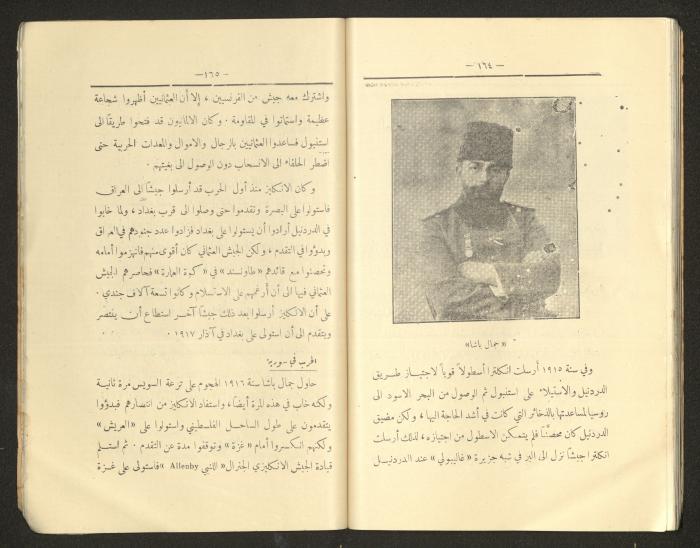 — ١٦٤ —
« جمال باشا »
وفي سنة ١٩١٥ أرسلت انكلترا أسطولاً قوياً لاجتياز طريق
الدردنيل والاستيلاء على استنبول ثم الوصول من البحر الاسود الى
روسيا لمساعدتها بالذخائر التي كانت في أشد الحاجة اليها ، ولكن مضيق
الدردنيل كان محصَّناً فلم يتمكن الاسطول من اجتيازه ، لذلك أرسلت
انكلترا جيشاً نزل الى البر في شبه جزيرة « غاليبولي » عند الدردنيل
— ١٦٥ —
واشترك معه جيش من الفرنسيين ، إلا أن العثمانيين أظهروا شجاعة
عظيمة واستماتوا في المقاومة . وكان الالمانيون قد فتحوا طريقاً الى
إستنبول فساعدوا العثمانيين بالرجال والاموال والمعدات الحربية حتى
اضطر الحلفاء الى الانسحاب دون الوصول الى بغيتهم .
وكان الانكليز منذ أول الحرب قد أرسلوا جيشاً الى العراق
فاستولوا على البصرة وتقدموا حتى وصلوا الى قرب بغداد ، ولما خابوا
في الدردنيل أرادوا أن يستولوا على بغداد فزادوا عدد جنودهم في العراق
وبدؤوا في التقدم ، ولكن الجيش العثماني كان أقوى منهم فانهزموا أمامه
وتحصنوا مع قائدهم « طاونسند » في « كوة العمارة » فحاصرهم الجيش
العثماني فيها الى أن أرغمهم على الاستسلام وكانوا تسعة آلاف جندي .
على أن الانكليز أرسلوا بعد ذلك جيشاً آخر استطاع أن ينتصر
ويتقدم الى أن استولى على بغداد في آذار ١٩١٧ .
الحرب في سورية
حاول جمال باشا سنة ١٩١٦ الهجوم على ترعة السويس مرة ثانية
ولكنه خاب في هذه المرة أيضاً ، واستفاد الانكليز من انتصارهم فبدؤوا
يتقدمون على طول الساحل الفلسطيني واستولوا على « العريش »
ولكنهم انكسروا أمام « غزة » وتوقفوا مدة عن التقدم . ثم استلم
قيادة الجيش الانكليزي الجنرال « اللنبي Allenby » فاستولى على غزة